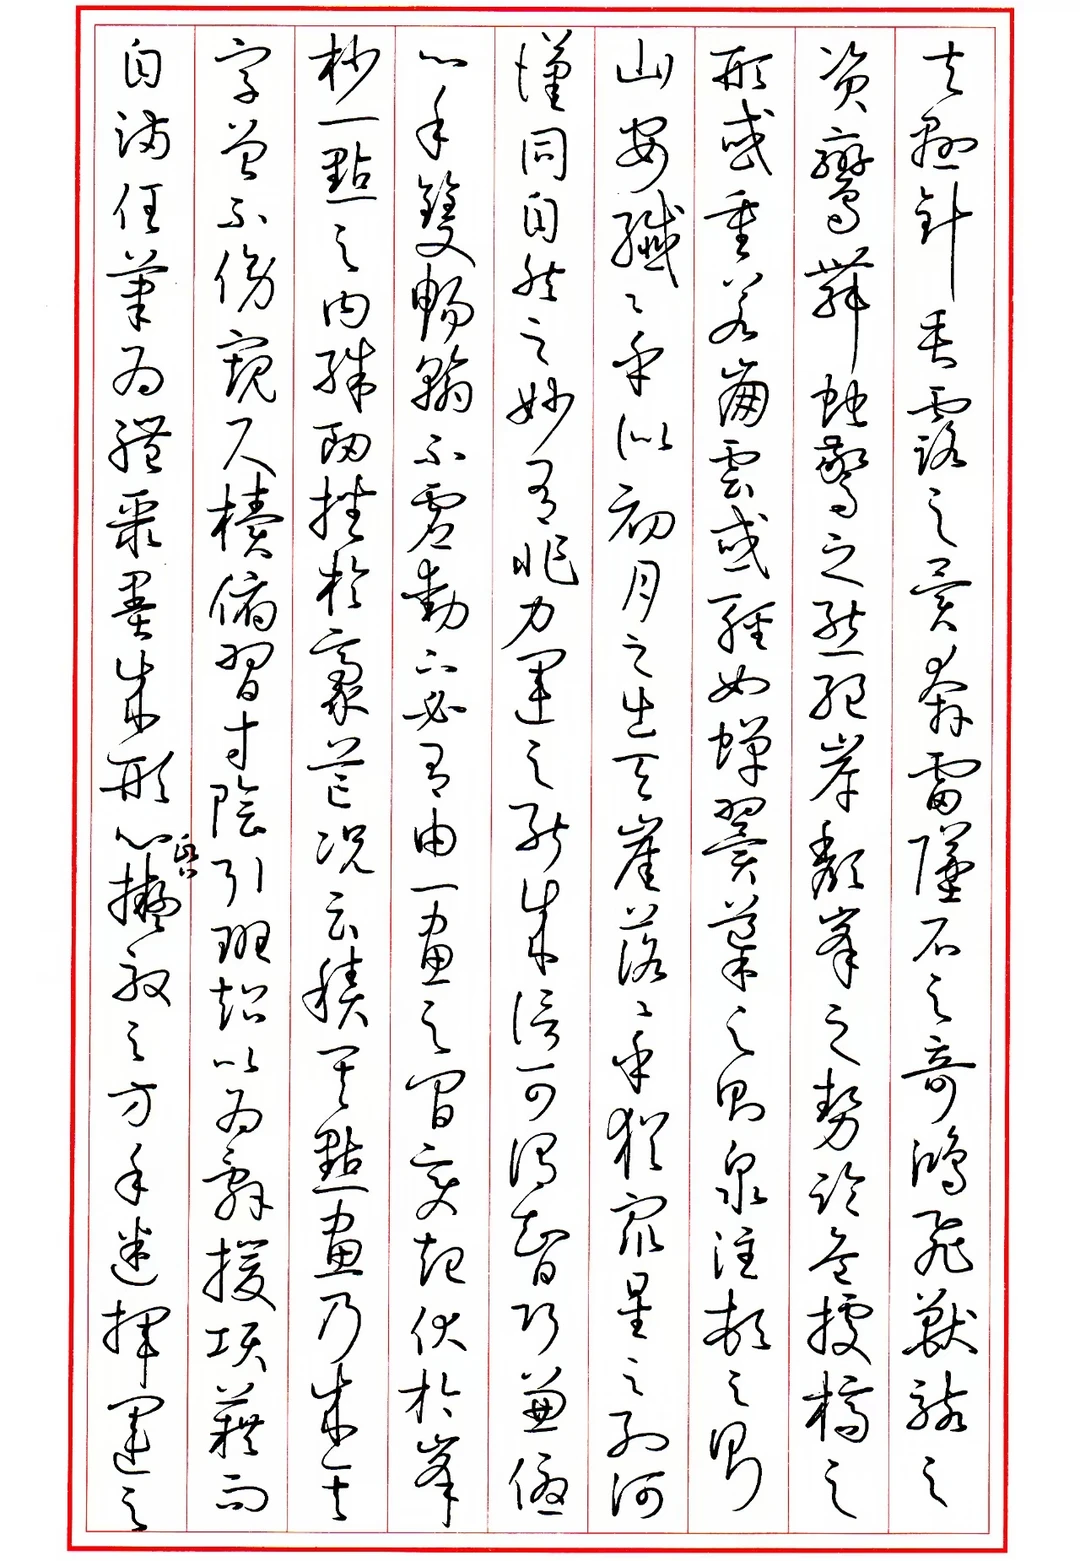 夫懸針垂露之異奔雷墜石之奇鴻飛獸駭之
資鸞舞蛇驚之態絕岸頹峯之勢臨危據槁之
形或重若崩雲或輕如蟬翼導之則泉注頓之則
山安纖〻乎似初月之出天崖落〻乎猶眾星之列河
漢同自然之妙有非力運之能成信可謂智巧兼優
心手雙暢翰不虛動下必有由一畫之間變起伏於峯
杪一點之內殊衄挫於豪芒況云積其點畫乃成其
字曾不傍窺尺櫝俯習寸陰引班超以為辭援項籍而
自滿任筆為體聚墨成形心昏擬效之方手迷揮運之